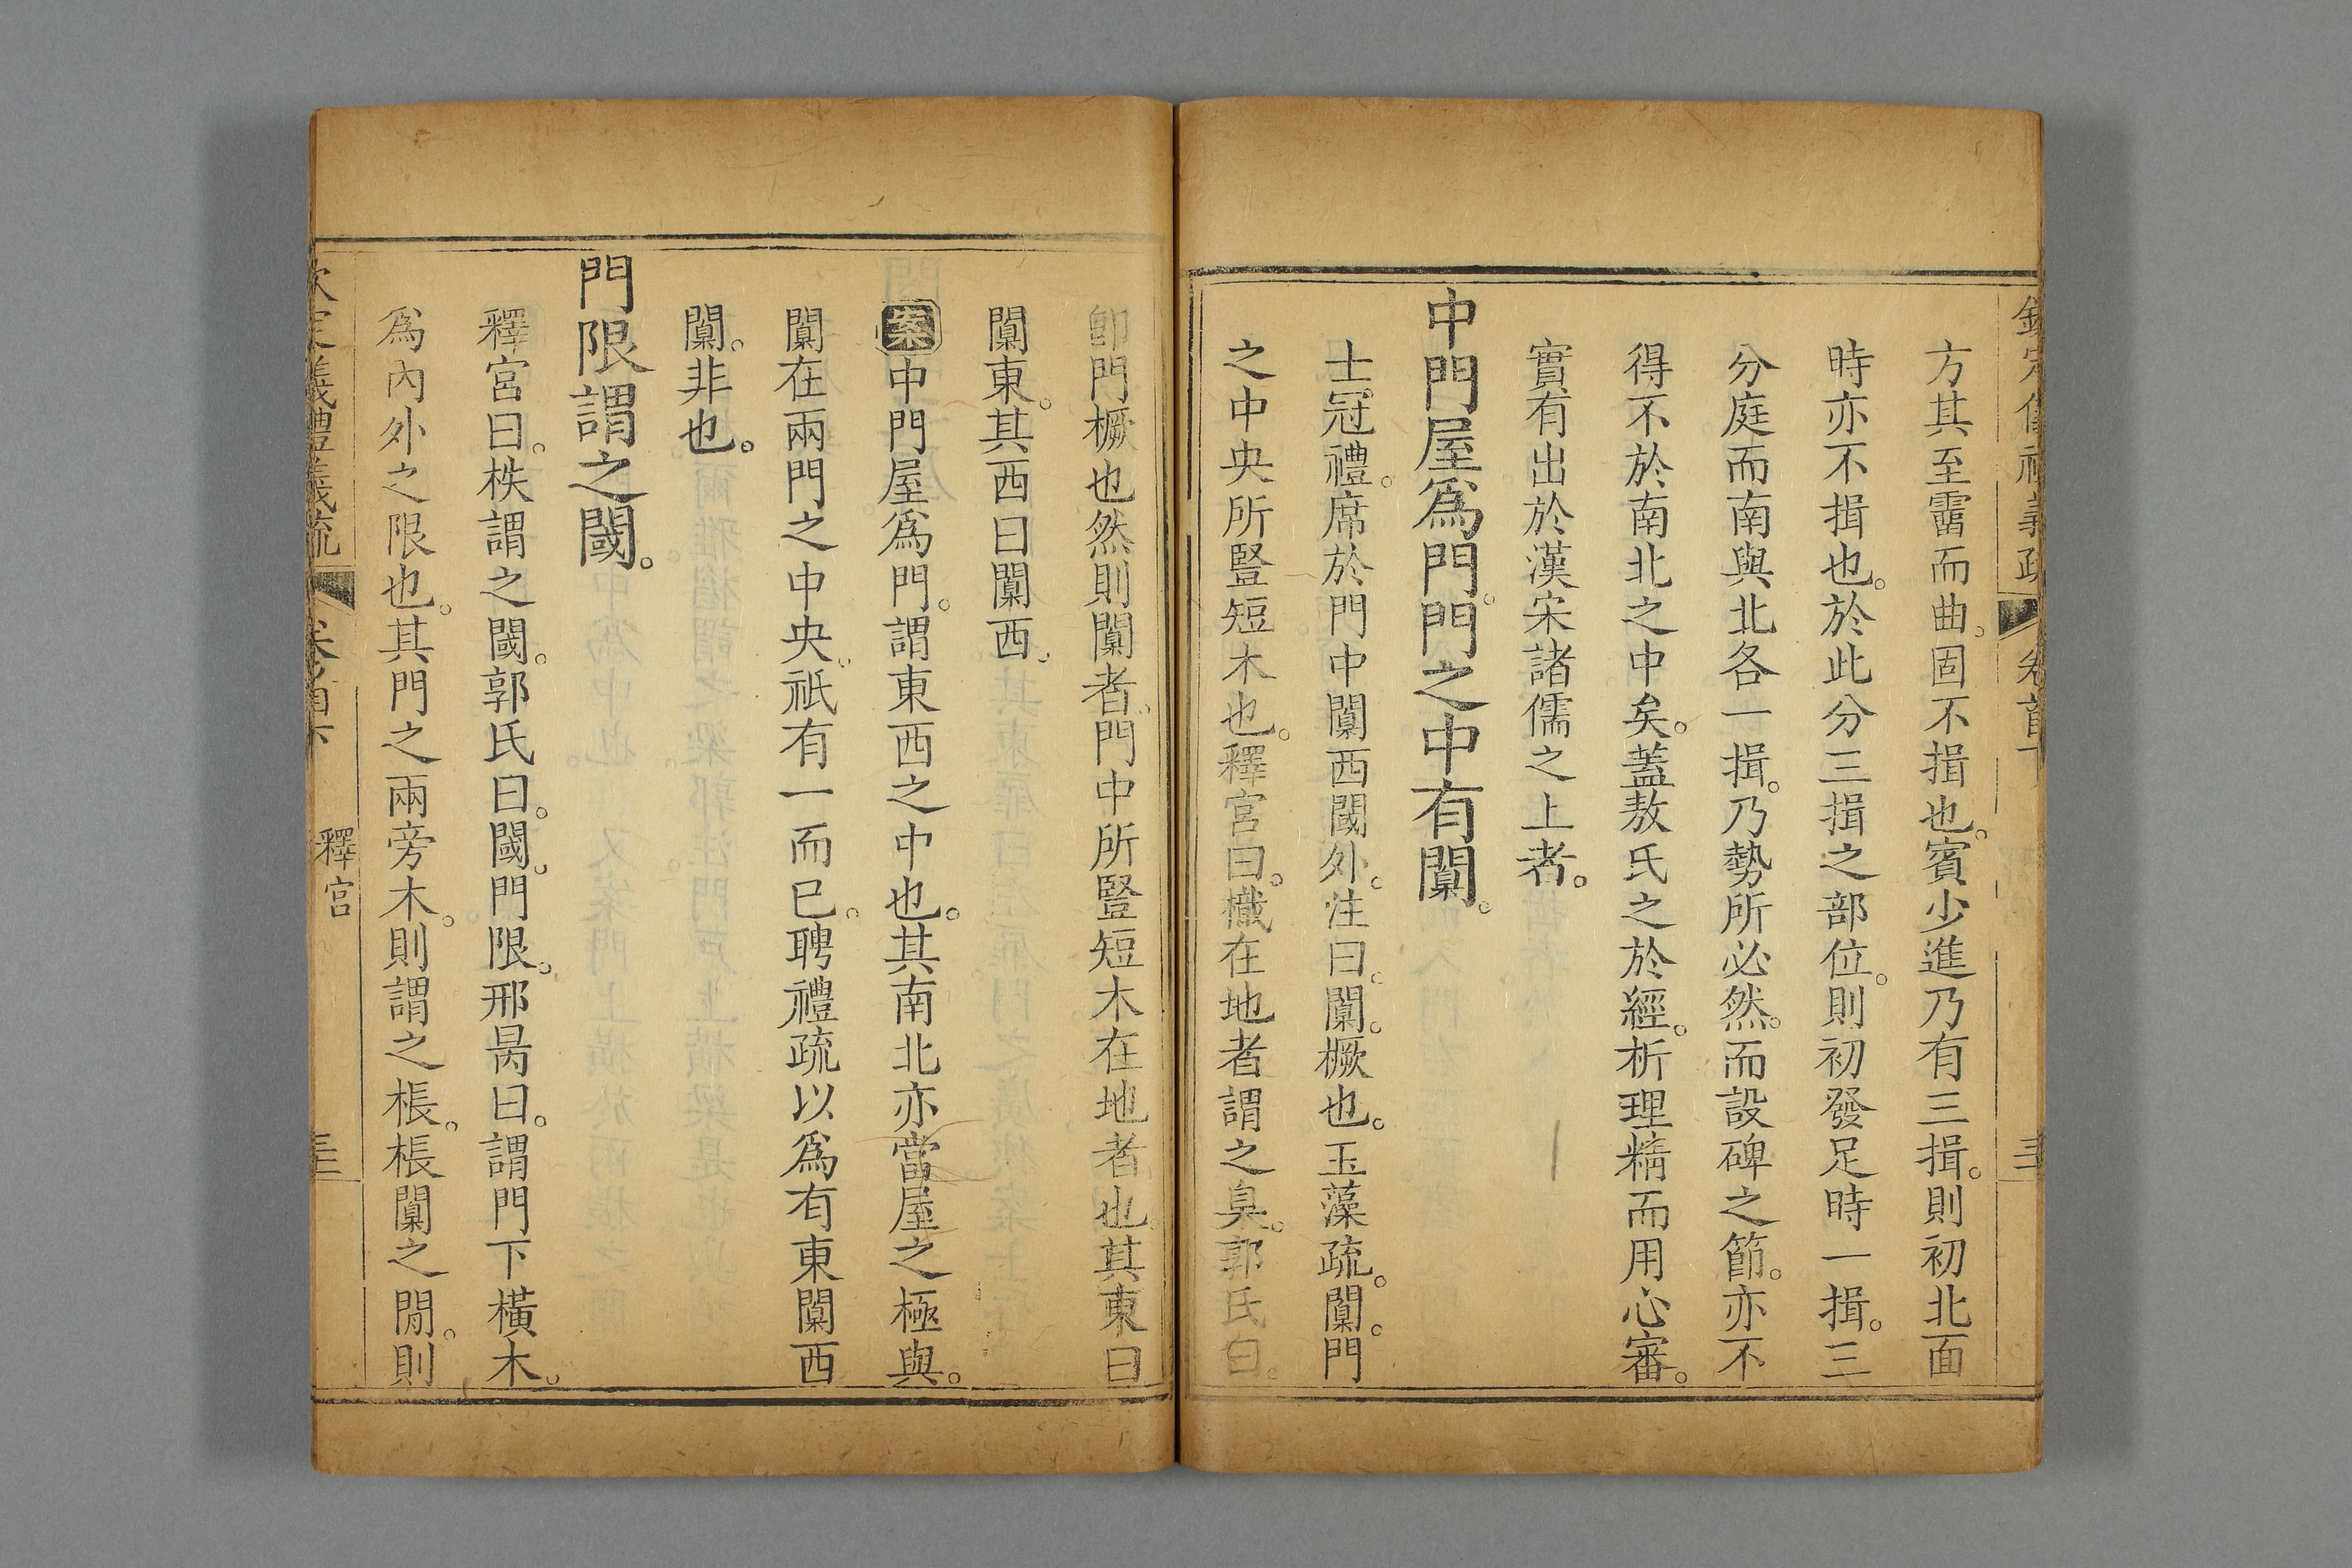 方其至霤而曲。固不揖也。賓少進乃有三揖。則初北面
時亦不揖也。於此分三揖之部位。則初發足時一揖。三
分庭而南與北各一揖。乃勢所必然。而設碑之節。亦不
得不於南北之中矣。蓋敖氏之於經。析理精而用心審。
實有出於漢宋諸儒之上者。
中門屋爲門。門之中有闑。
士冠禮。席於門中闑西閾外。注曰。闑。橛也。玉藻疏。闑。門
之中央所豎短木也。釋宮曰。樴在地者謂之臬。郭氏曰。
卽門橛也然則闑者。門中所豎短木在地者也。其東曰
闑東。其西曰闑西。
案中門屋爲門。謂東西之中也。其南北亦當屋之極與。
闑在兩門之中央。祇有一而已。聘禮疏以爲有東闑西
闑。非也。
門限謂之閾。
釋宮曰。柣謂之閾。郭氏曰。閾。門限。邢昺曰。謂門下橫木。
爲內外之限也。其門之兩旁木。則謂之棖。棖闑之閒。則
欽定義禮義疏 卷首下 釋宮